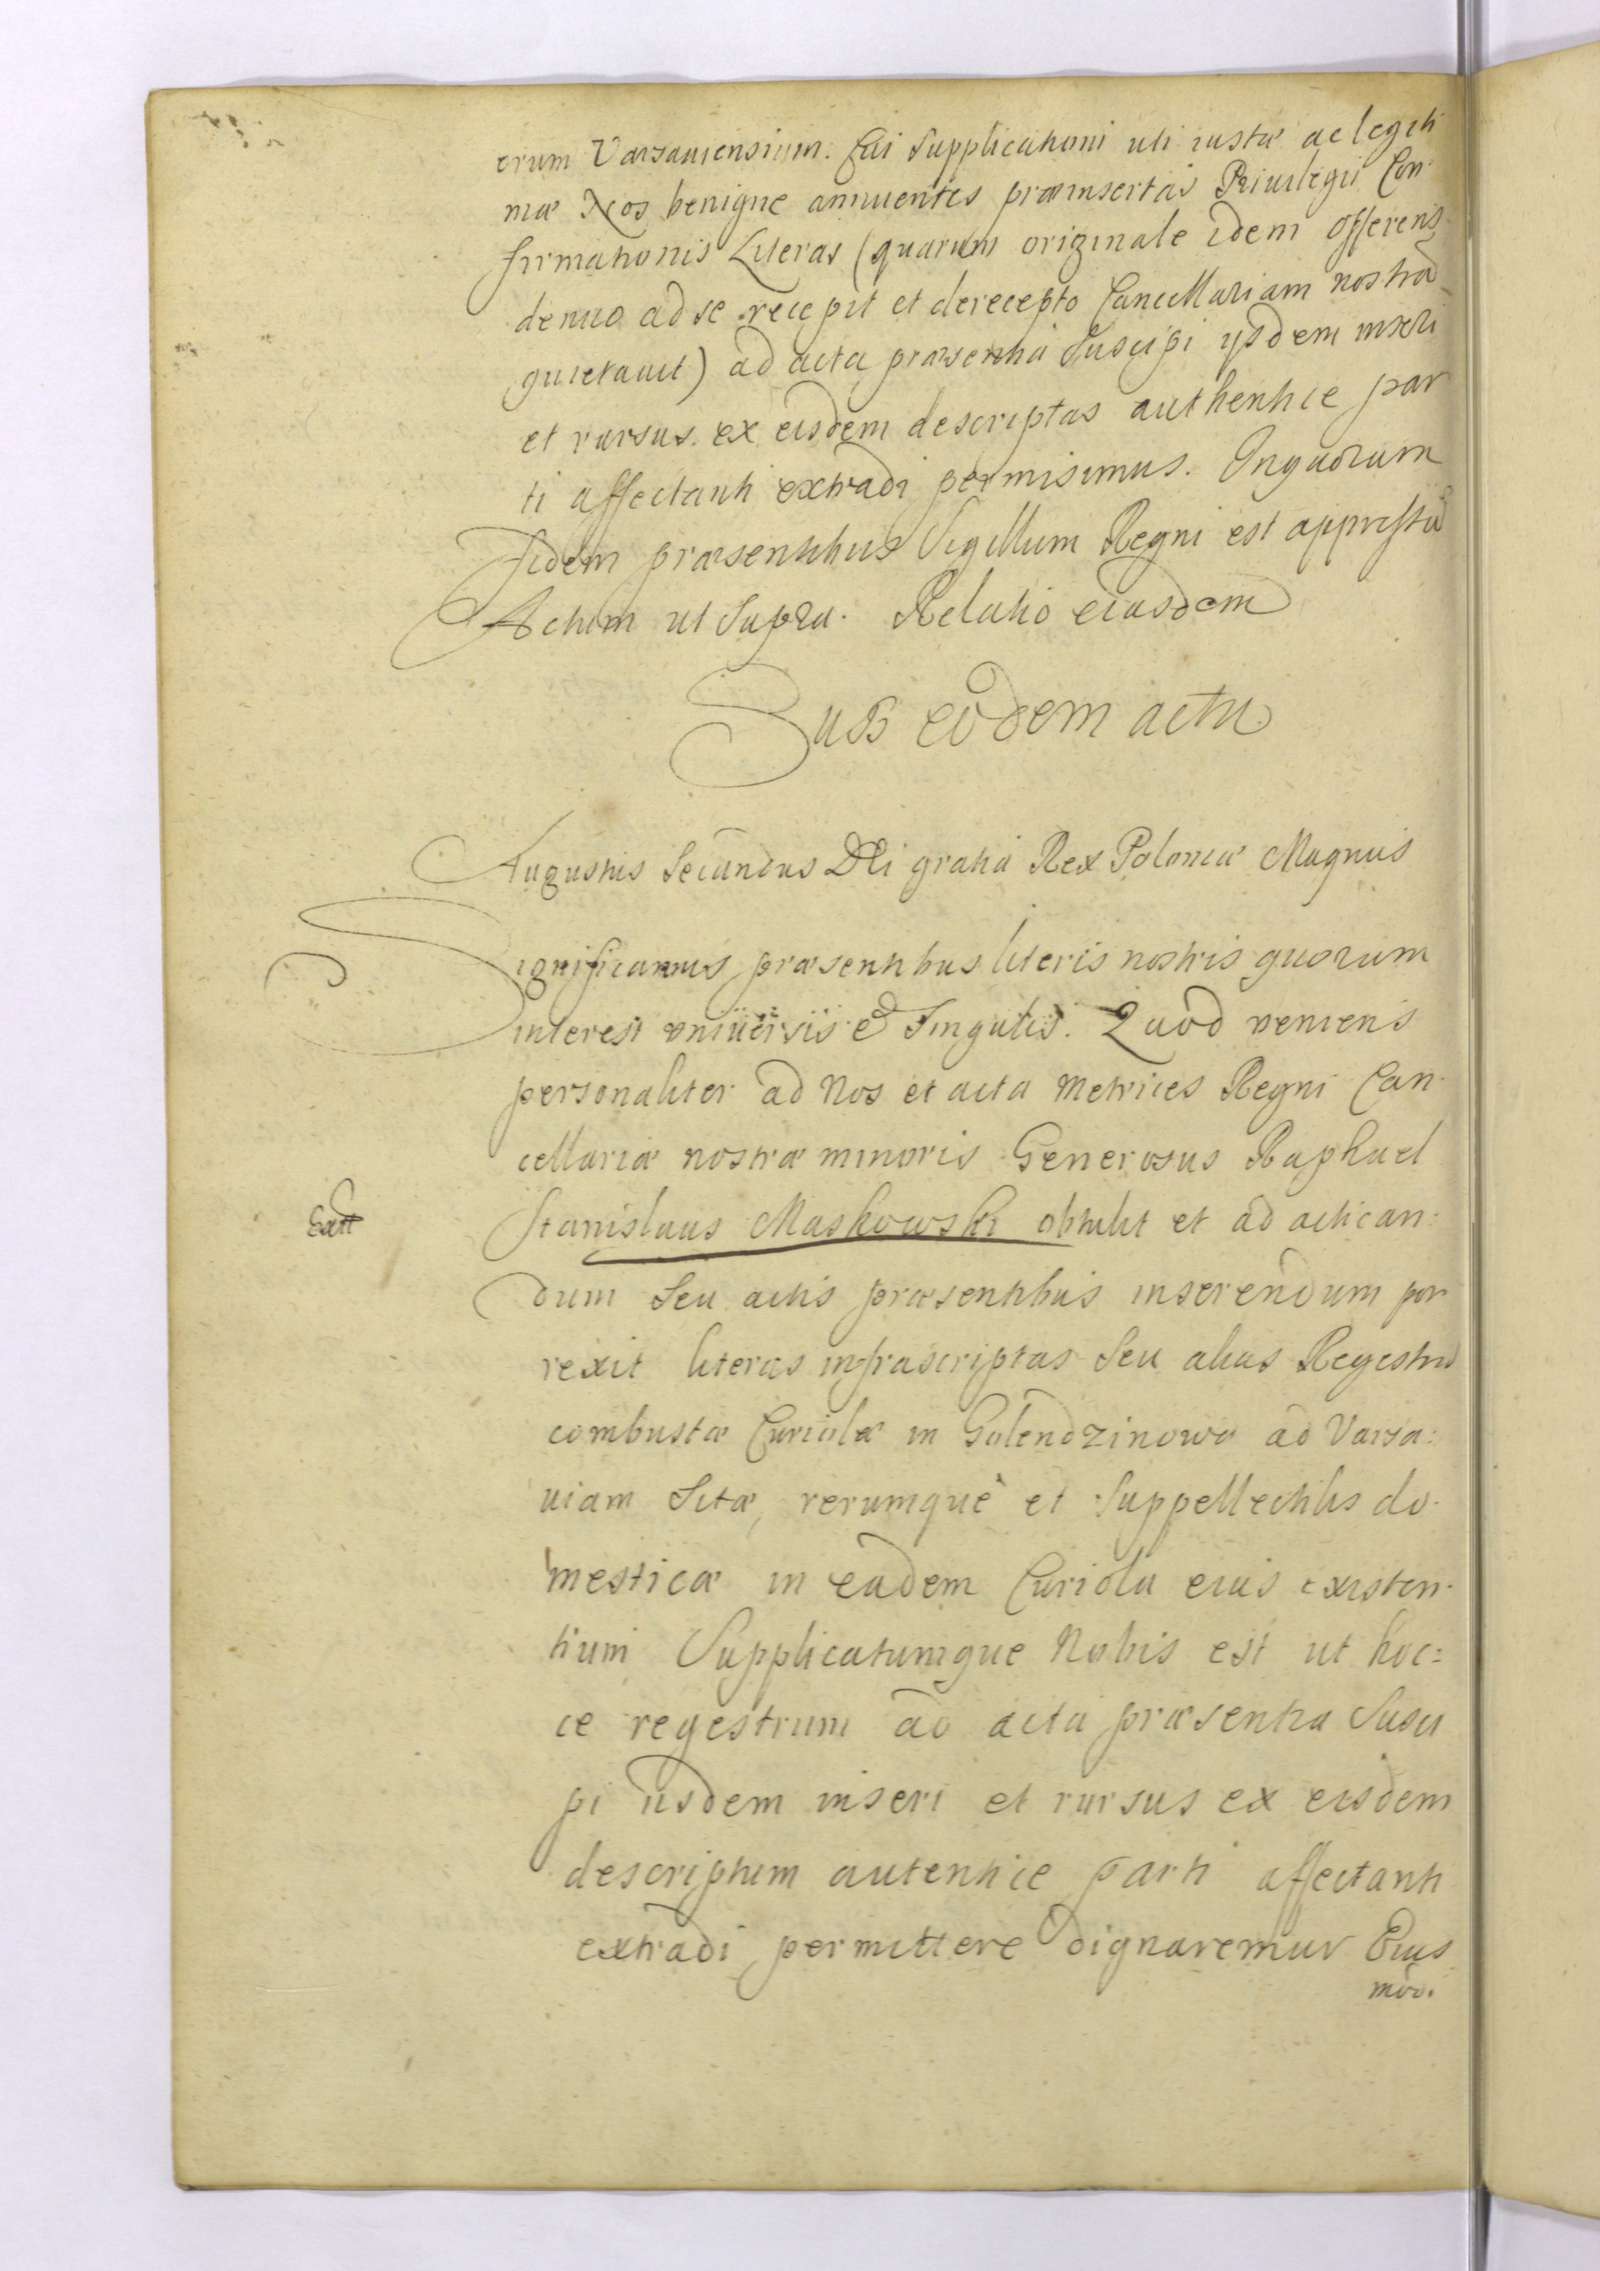 orum Varsauiensium. Cui Supplicationi uti iustæ ac legiti
mæ Nos benigne annuentes præinsertas Priuilegii Con
firmationis Literas (quarum originale idem offerens
denuo ad se recepit et de recepto Cancellariam nostrã
quietauit) ad acta præsentia Suscipi ijsdem inseri
et rursus ex eisdem descriptas authentice par
ti affectanti extradi permisimus. In quorum
fidem præsentibus Sigillum Regni est appressũ
Actum ut Supra. Relatio eiusdem
Sub eodem actu
Augustus Secundus Dei gratia Rex Poloniæ Magnus
Significamus præsentibus literis nostris quorum
interest vniuersis & Singulis. Quod veniens
personaliter ad Nos et acta Metrices Regni Can
cellariæ nostræ minoris Generosus Raphael
Stanislaus Maskowski obtulit et ad actican:
dum Seu actis præsentibus inserendum por
rexit literas infrascriptas Seu alias Regestrũ
combustæ Curiolæ in Golendzinowo ad Varsa:
uiam Sitæ, rerumquè et Suppellectilis do
mesticæ in eadem Curiola eius existen
tium Supplicatumque Nobis est ut hoc=
ce regestrum ad acta præsentia Susci
pi iisdem inseri et rursus ex eisdem
descriptum autentice parti affectanti
extradi permittere dignaremur Eius
mõd.